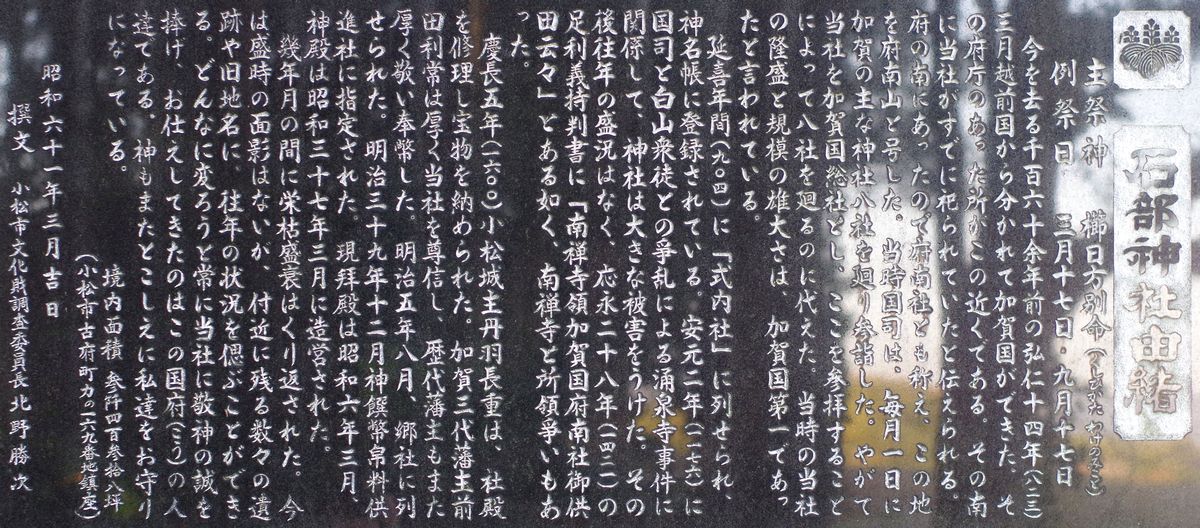 石部神社由緒
主祭神 櫛日方別命(くしひかたわけのみこと)
例祭日 三月十七日・九月十七日
今を去る千百六十余年前の弘仁十四年(八二三)
三月越前国から分かれて加賀国ができた。そ
の府庁のあった所がこの近くである。その南
に当社がすでに祀られていたと伝えられる。
府の南にあったので府南社とも称え、この地
を府南山と号した。当時国司は、毎月一日に
加賀の主な神社八社を廻り参詣した。やがて
当社を加賀国総社とし、ここを参拝すること
によって八社を廻るのに代えた。当時の当社
の隆盛と規模の雄大さは 加賀国第一であっ
たと言われている。
延喜年間(九〇四)に「式内社」に列せられ、
神名帳に登録されている。安元二年(一一七六)に
国司と白山衆徒との争乱による涌泉寺事件に
関係して、神社は大きな被害をうけた。その
後往年の盛況はなく、応永二十八年(一四二一)の
足利義持判書に「南禅寺領加賀国府南社御供
田云々」とある如く、南禅寺と所領争いもあ
った。
慶長五年(一六〇〇)小松城主丹羽長重は、社殿
を修理し宝物を納められた。加賀三代藩主前
田利常は厚く当社を尊信し、歴代藩主もまた
厚く敬い奉幣した。明治五年八月、郷社に列
せられた。明治三十九年十二月神饌幣帛料供
進社に指定された。現拝殿は昭和六年三月、
神殿は昭和三十七年三月に造営された。
幾年月の間に栄枯盛衰はくり返された。今
は盛時の面影はないが、付近に残る数々の遺
跡や旧地名に、往年の状況を偲ぶことができ
る。どんなに変ろうと常に当社に敬神の誠を
捧げ、お仕えしてきたのはこの国府(こう)の人
達である。神もまたとこしえに私達をお守り
になっている。
境内面積 参阡四百参拾八坪
(小松市古府町カの一六九番地鎮座)
昭和六十一年三月吉日
撰文 小松市文化財調査委員長 北野勝次